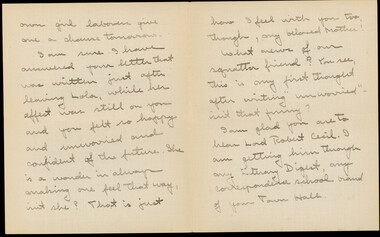 own girl laborers give
me a chance tomorrow.
I am sure I have
answered your letter that
was written just after
leaving Lola, while her
effect was still on you
and you felt so happy
and unworried and
confident of the future. She
is a wonder in always
making one feel that way,
isn't she? That is just
how I feel with you too,
though, my beloved Mother!
What news of our
squatter friend? You see,
this is my first thought
after writing "unworried" -
isn't that funny?
I am glad you are to
hear Lord Robert Cecil. I
am getting him through
my Literary Digest, my
correspondence school brand
of your Town Hall.